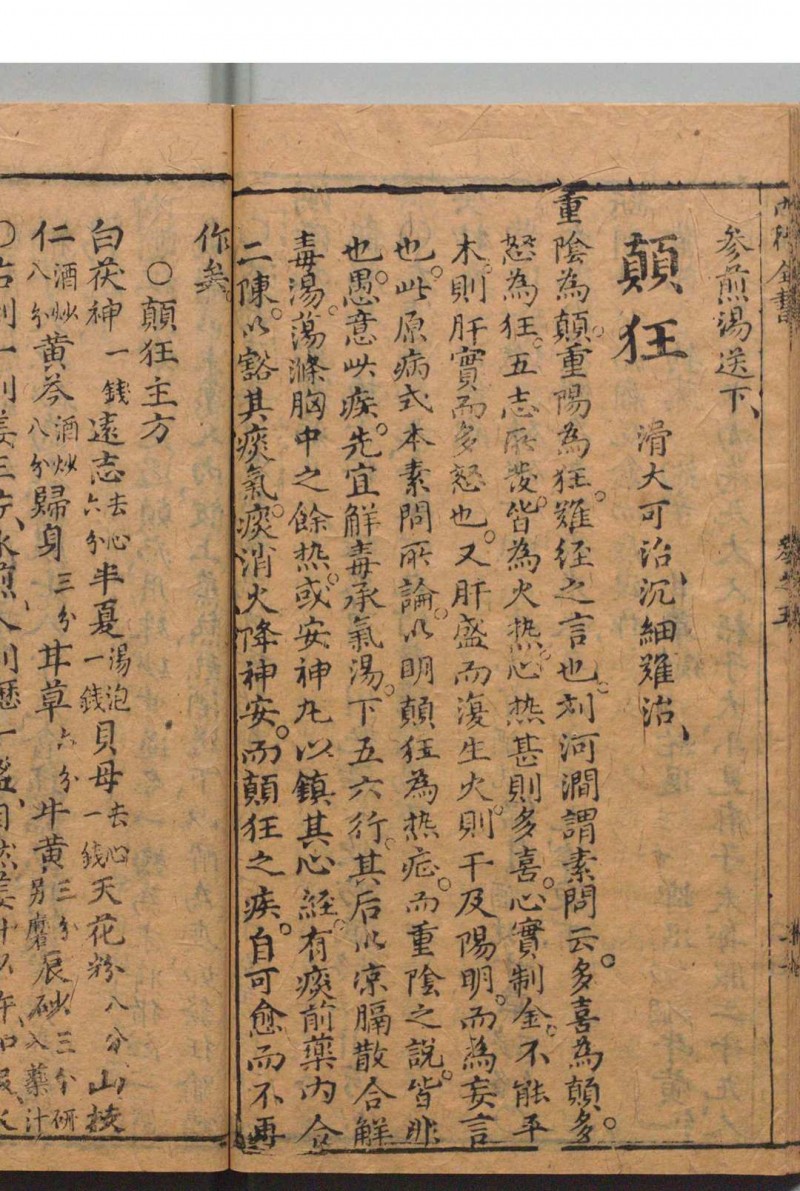 參煎湯送下、
顛狂　滑大可治、沉細難治、
重陰為顛。重陽為狂。難經之言也。刘河澗謂素問云。多喜為顛。多
怒為狂。五志所發。皆為火热。心热甚則多喜。心實制金。不能平
木。則肝實而多怒也。又肝盛而復生火。則干及陽明。而為妄言
也。此原病式本素問所論。以明顛狂為热症。而重陰之說。皆非
也。愚意此疾。先宜解毒承氣湯。下五六行。其后以凉膈散合解
毒湯。蕩滌胸中之餘热。或安神丸以鎮其心經。有痰前藥内合
二陳。以豁其痰氣。痰消火降神安。而顛狂之疾。自可愈而不再
作矣。
○顛狂主方
白茯神一錢遠志去心六分半夏湯泡一錢貝母去心一錢天花粉八分山梔
仁酒炒八分黄芩酒炒八分歸身三分甘草六分牛黄三分另磨辰砂三分研入藥汁